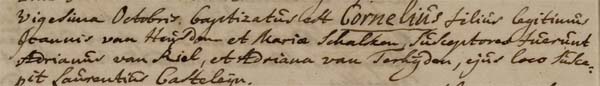 Vigesima Octobris. baptizatus est Cornelius filius legitimus
Joannis van Heijden et Mariæ Schalken, Susceptores fuerunt
Adrianus van Riel, et Adriana van Terheijden, ejus loco susce-
pit Laurentius Casteleijn.